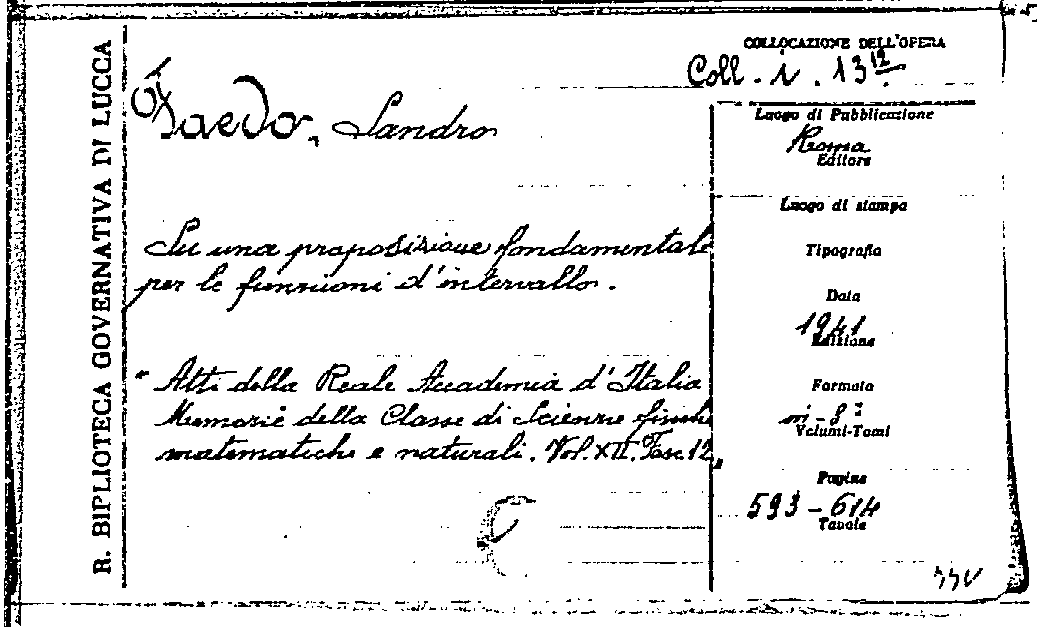 R. BIPLIOTECA GOVERNATIVA DI LUCCA
Faedo, Sandro
Su una proposizione fondamentale
per le funzioni d'intervallo.
" Atti della Reale Accademia d'Italia
Memorie della Classe di Scienze fisiche
matematiche e naturali. Vol. XII. Fasc. 12 "
COLLOCAZIONE DELL'OPERA
Coll. i. 13 12
Luogo di Pubblicazione
Roma
Editore
Luogo di stampa
Tipografia
Data
1941
Edizione
Formato
in-8°
Volumi-Tomi
Pagine
593-614
Tavole